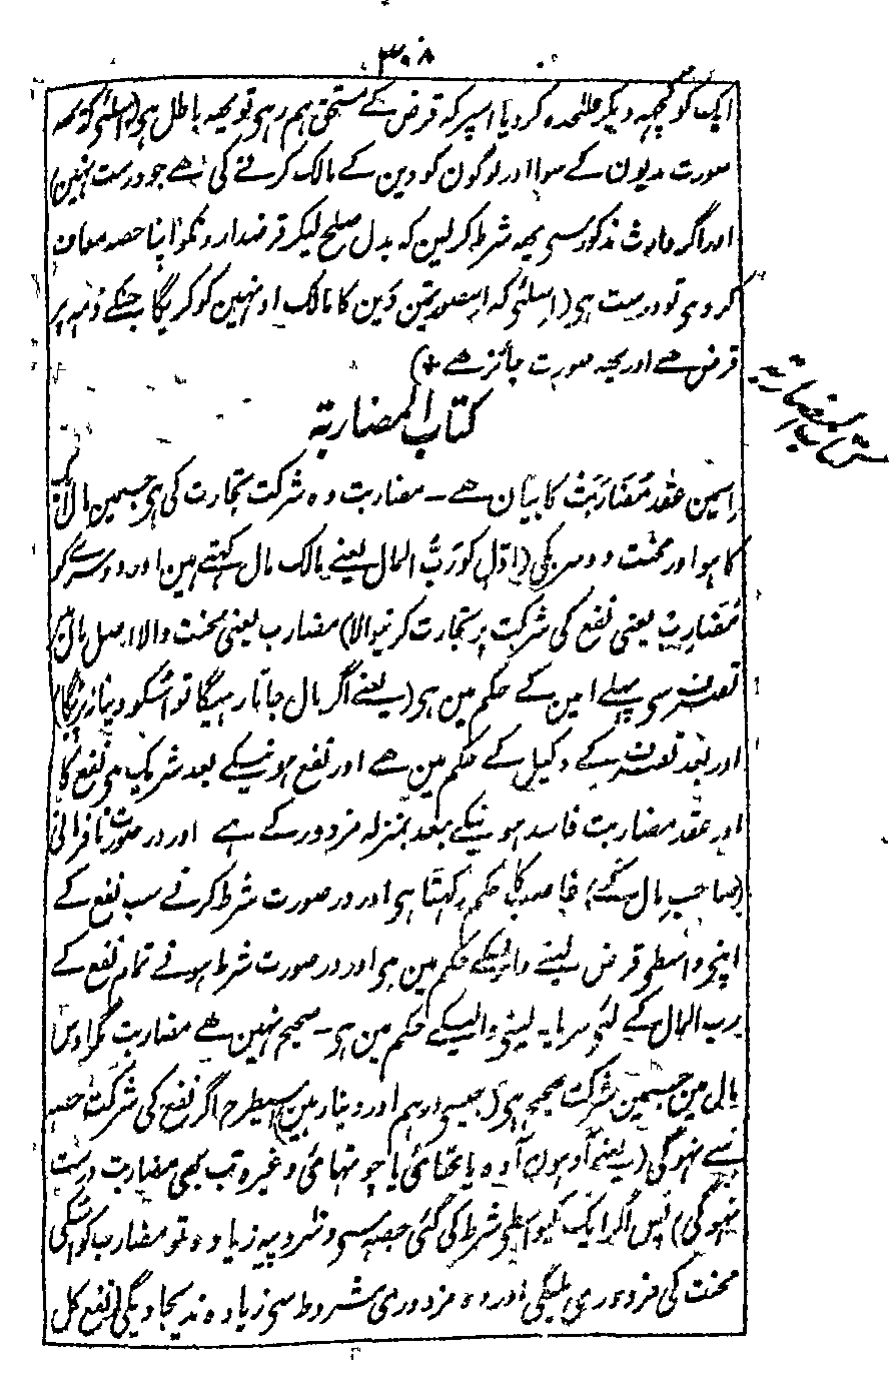 ۳۰۸
ایک کو کچھہ دیکر علٰحدہ کردیا اسپر کہ قرض کے مستحق ہم رہی تو یہہ باطل ہی (اسلئی کہ یہہ
صورت مدیون کے سوا اور لوگون کو دین کے مالک کرنے کی ہے جو درست نہین)
اور اگر وارث مذکور سی یہہ شرط کرلین کہ بدل صلح لیکر قرضدارونکو اپنا حصہ معاف
کردی تو درست ہی (اسلئی کہ اسصورتمین دَین کا مالک اونہین کو کریگا جنکے ذمہ پر
قرض ہے اور یہہ صورت جائز ہے +)
کتاب المضاربۃ
کتاب المضاربۃ
اسمین عقد مُضَارَبَتْ کا بیان ہے ـ مضاربت وہ شرکت تجارت کی ہی جسمین مال ایک
کا ہو اور محنت دوسریکی (اوّل کو رَبُّ المال یعنے مالک مال کہتے ہین اور دوسرے کو
مُضَارِبْ یعنی نفع کی شرکت پر تجارت کرنیوالا) مضارب یعنی محنت والا اصل مال مین
تصرف سی پہلے امین کے حکم مین ہی (یعنے اگر مال جاتا رہیگا تو اُسکو دینا نہ پڑیگا)
اور بعد تصرف کے وکیل کے حکم مین ہے اور نفع ہونیکے بعد شریک ہی نفع کا
اور عقد مضاربت فاسد ہونیکے بعد بمنزلہ مزدور کے ہے اور در صورت نافرمانی
(صاحب مال کے) غاصب کا حکم رکہتا ہی اور در صورت شرط کرنے سب نفع کے
اپنی واسطی قرض لینے والیکے حکم مین ہی اور در صورت شرط ہونے تمام نفع کے
رب المال کے لئی سرمایہ لینی والیکے حکم مین ہی ـ صحیح نہین ہے مضاربت مگر اوس
مال مین جسمین شرکت صحیح ہی (جیسی درہم اور دینار مین) اسیطرح اگر نفع کی شرکت حصہ
سے نہوگی (یعنے آدہون آدہ یا تہائی یا چوتہائی وغیرہ تب بھی مضاربت درست
نہوگی) پس اگر ایک کیواسطی شرط کی گئی حصہ سی دس روپیہ زیادہ تو مضارب کو اسکی
محنت کی مزدوری ملیگی اور وہ مزدوری مشروط سی زیادہ ندیجاویگی (نفع کل